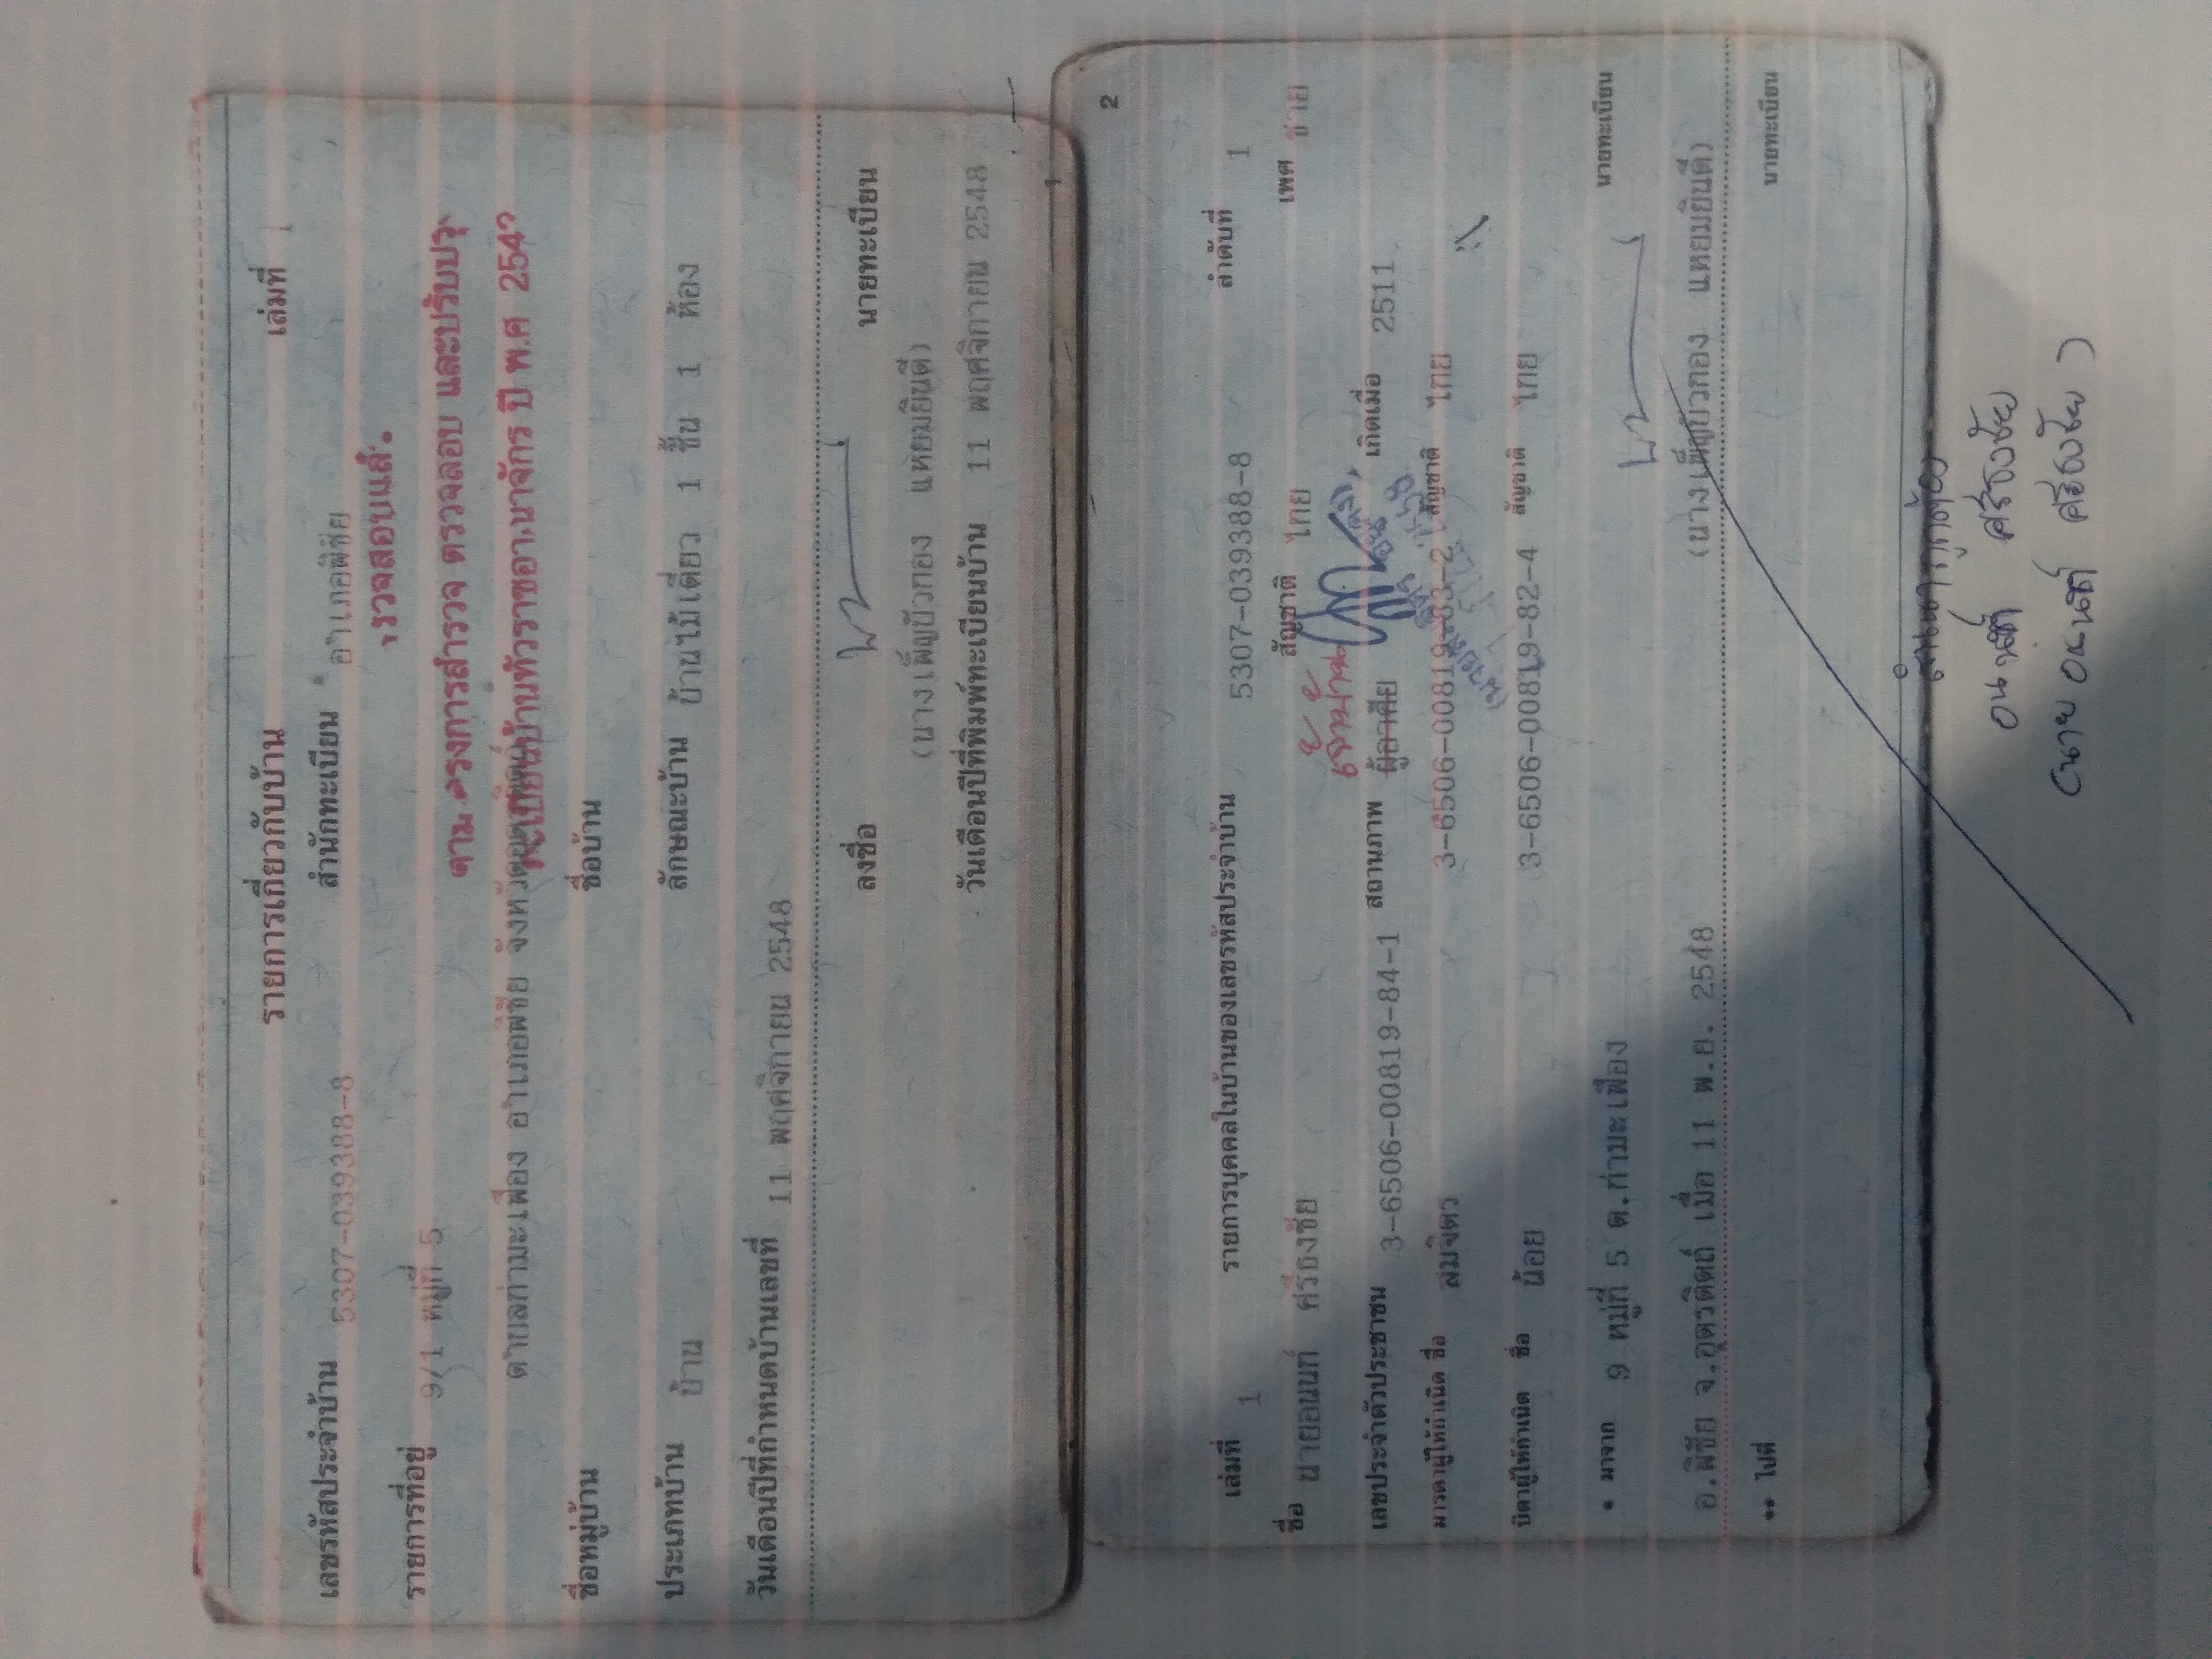 รายการเกี่ยวกับบ้าน เล่มที่ 1
เลขรหัสประจำบ้าน 5307-039388-8 สำนักทะเบียน อำเภอพิชัย
รายการที่อยู่ 9/1 หมู่ที่ 5
ตรวจสอบแล้ว
ตามโครงการสำรวจ ตรวจสอบ และปรับปรุง
ตำบลท่ามะเฟือง อำเภอพิชัย จังหวัดอุตรดิตถ์
ทะเบียนบ้านทั่วราชอาณาจักร ปี พ.ศ 254
ชื่อหมู่บ้าน ชื่อบ้าน
ประเภทบ้าน บ้าน ลักษณะบ้าน บ้านไม้เดี่ยว 1 ชั้น 1 ห้อง
วันเดือนปีที่กำหนดบ้านเลขที่ 11 พฤศจิกายน 2548
ลงชื่อ นายทะเบียน
(นางเพ็ญบัวทอง แหยมยินดี)
วันเดือนปีที่พิมพ์ทะเบียนบ้าน 11 พฤศจิกายน 2548
1
2
เล่มที่ 1 รายการบุคคลในบ้านของเลขรหัสประจำบ้าน 5307-039388-8 ลำดับที่ 1
ชื่อ นายอนนท์ ศรีธงชัย สัญชาติ ไทย เพศ ชาย
เจ้าบ้าน
เลขประจำตัวประชาชน 3-6506-00819-84-1 สถานภาพ ผู้อาศัย เกิดเมื่อ 2511
มารดาผู้ให้กำเนิด ชื่อ สมจิตร 3-6506-00819-83-2 สัญชาติ ไทย
บิดาผู้ให้กำเนิด ชื่อ น้อย 3-6506-00819-82-4 สัญชาติ ไทย
* มาจาก 9 หมู่ที่ 5 ต.ท่ามะเฟือง นายทะเบียน
อ.พิชัย จ.อุตรดิตถ์ เมื่อ 11 พ.ย. 2548 (นางเพ็ญบัวทอง แหยมยินดี)
** ไปที่ นายทะเบียน
สำเนาถูกต้อง
อนนท์ ศรีธงชัย
(นาย อนนท์ ศรีธงชัย)